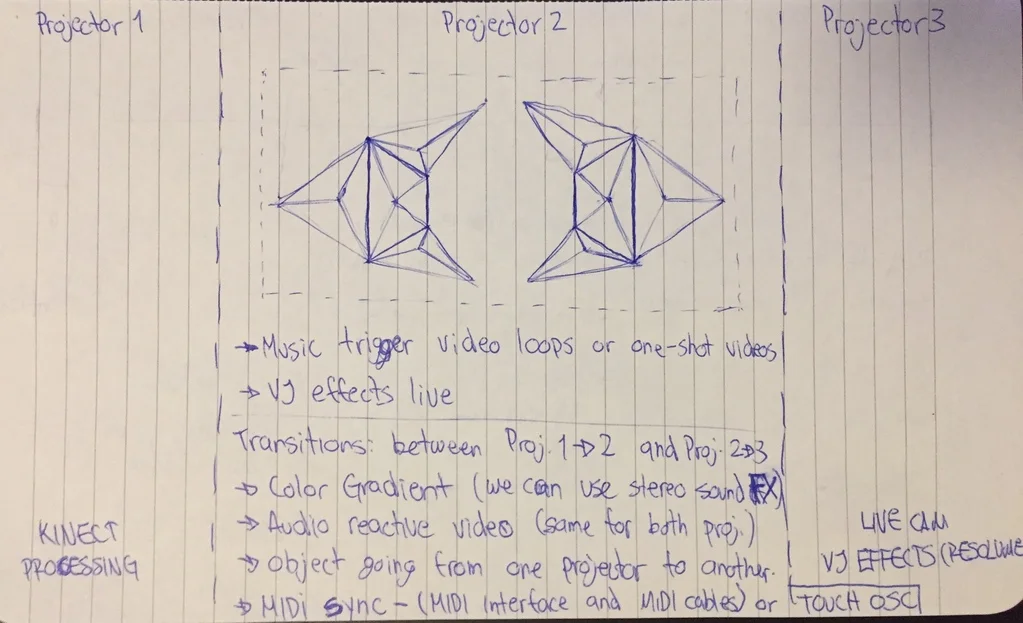 Projector 1
Projector 2
Projector 3
→ Music trigger video loops or one-shot videos
→ VJ effects live
Transitions: between Proj. 1→2 and Proj. 2→3
→ Color Gradient (we can use stereo sound FX)
→ Audio reactive video (same for both proj.)
→ Object going from one projector to another.
→ MIDI sync - (MIDI Interface and MIDI cables) or TOUCH OSC
KINECT
PROCESSING
LIVE CAM
VJ EFFECTS (RESOLUME